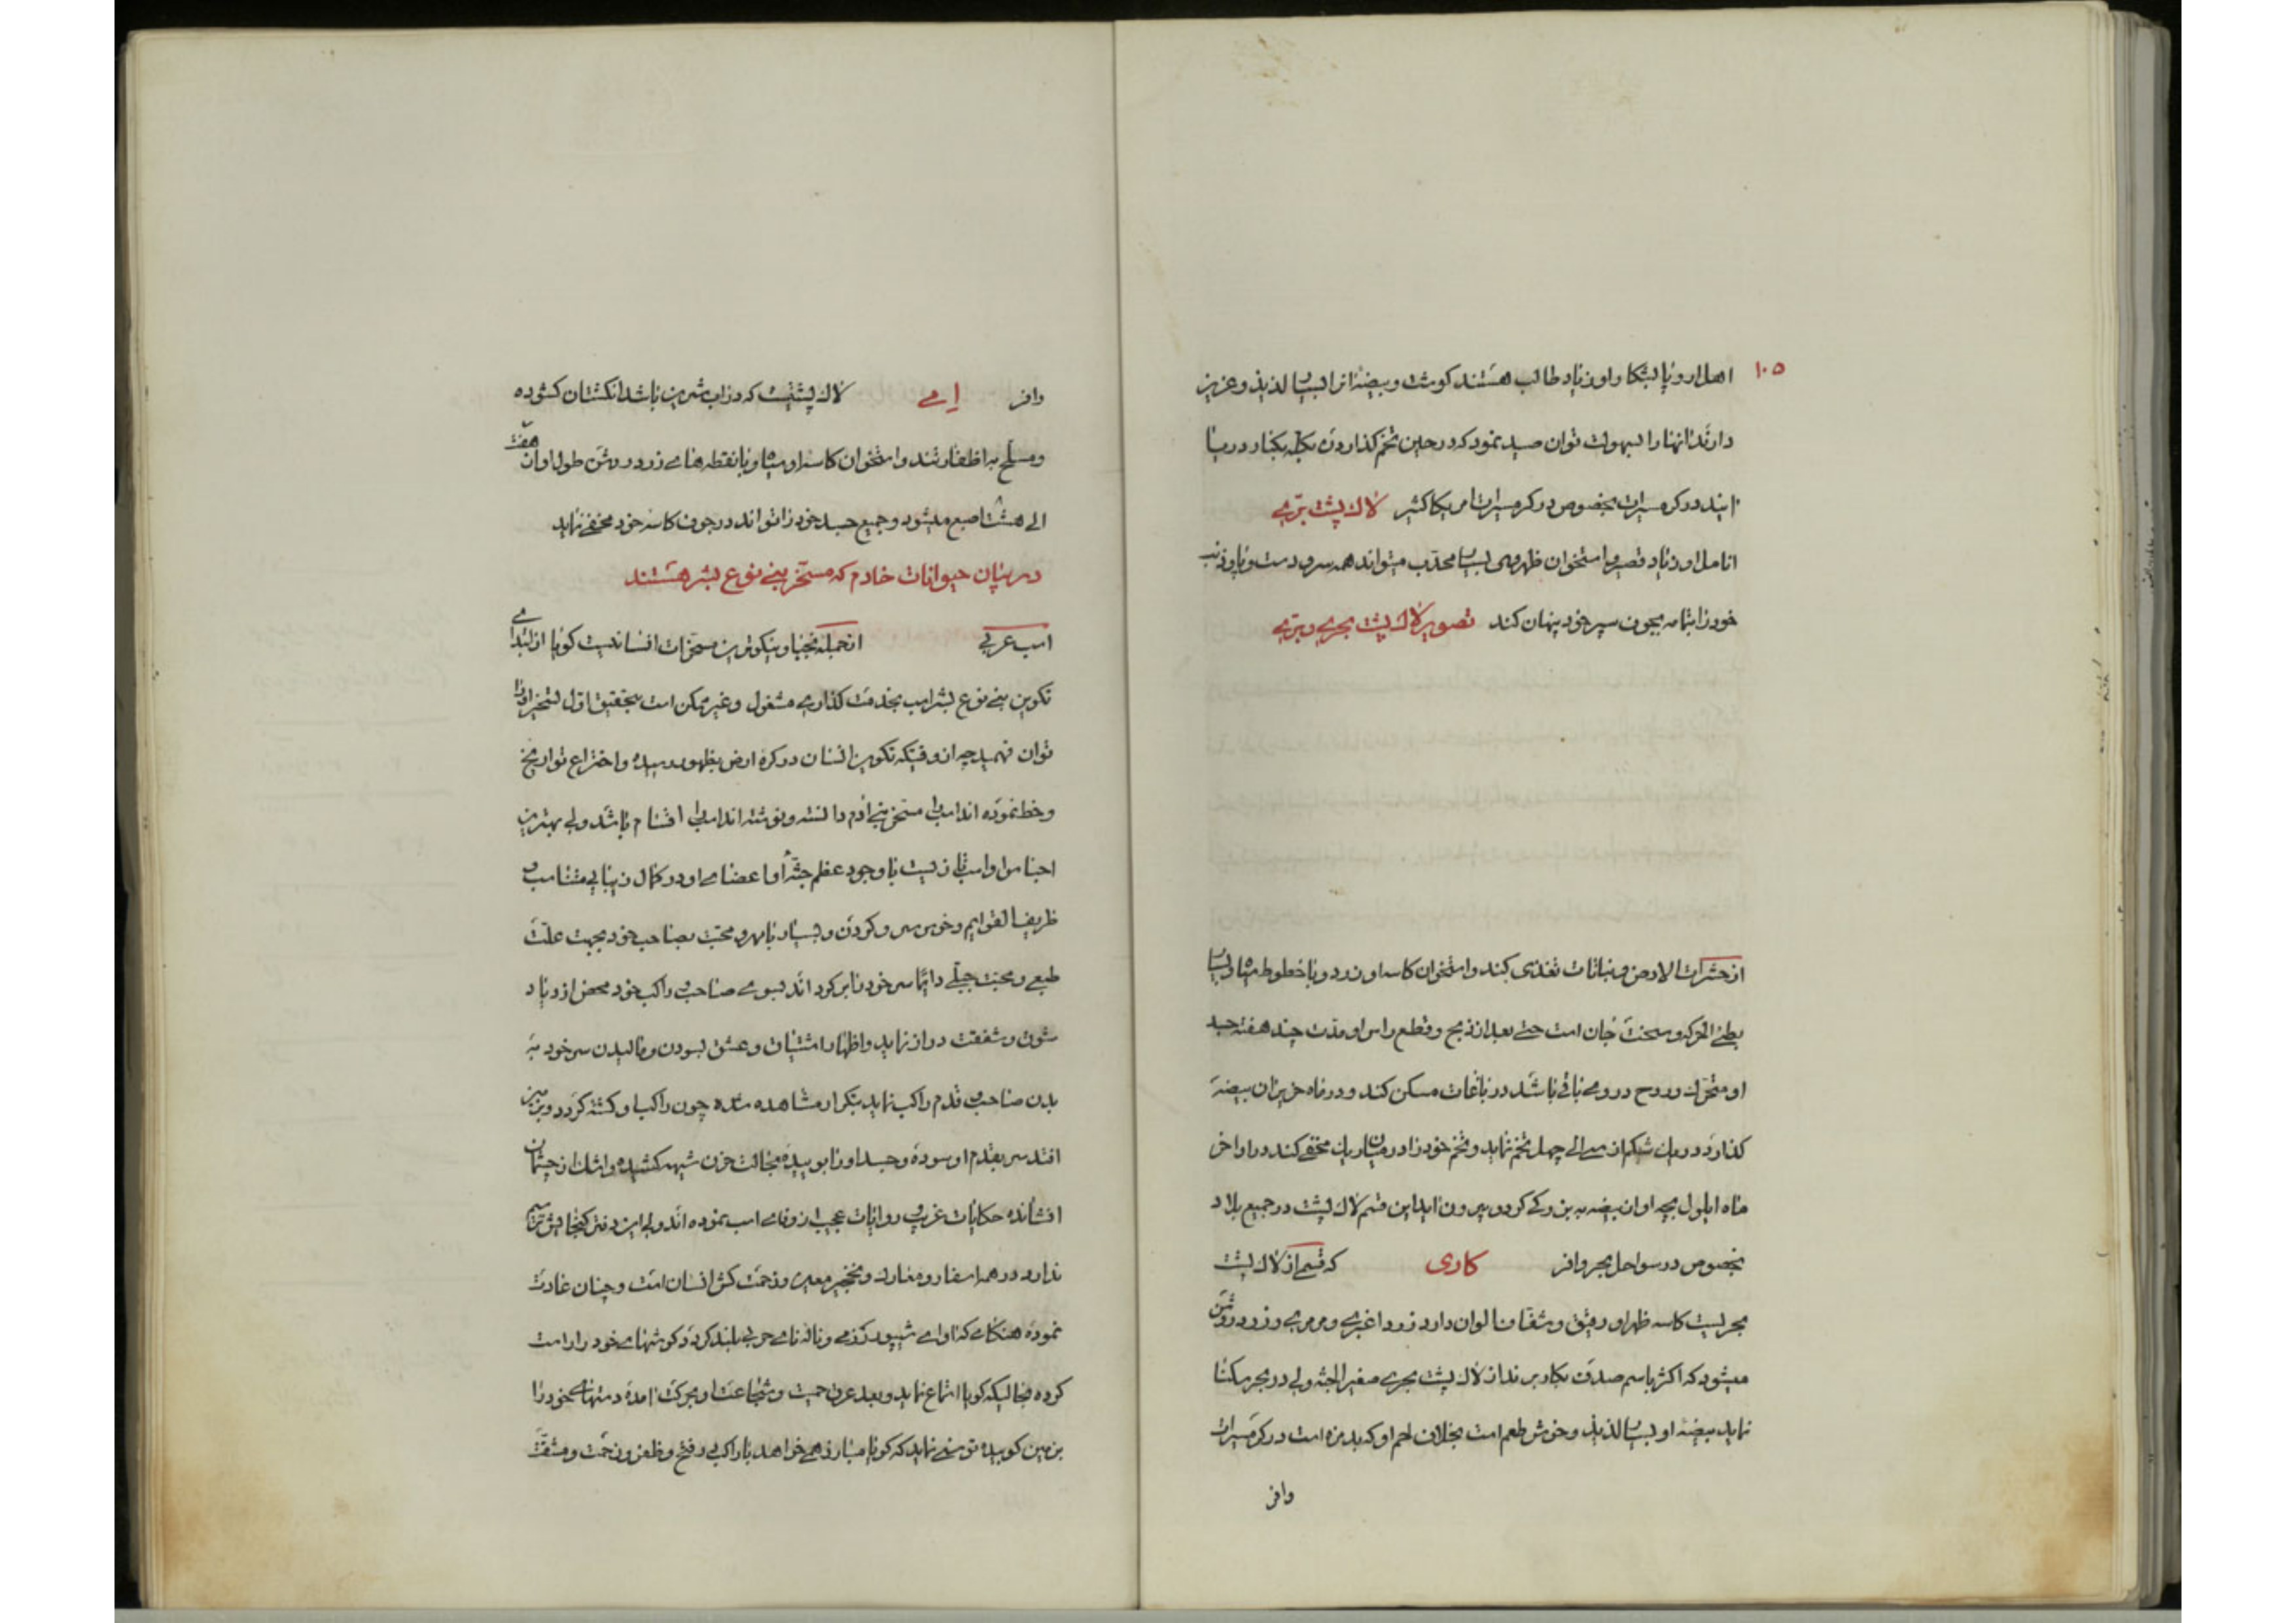 ۱۰۵
اهل اروپا لبنکا و او زیاد طالب هستند کوشت و بیضهٔ انرا بسیار لذیذ و عزیز
دارند انها را بسهولت توان صید نمود که در حین تخم کذاردن بکله بکنار دریا
ایند در کرمسیرات بخصوص در کرمسیرات امریکا کثیر لاك پشت برّی
انامل او زیاد قصیر و استخوان ظهر وی بسیار محدّب میتواند همه سر و دست و پا و ذنب
خود را بتمامه بجوف سپر خود پنهان کند تصویر لاك پشت بحری و برّی
از حشرات الارض و نباتات تغذی کند و استخوان کاسه او زرد و با خطوط سیاه و بسیار
بطئ الحرکه و سخت جان است حتی بعد از ذبح و قطع راس او مدت چند هفته جسد
او متحرك و روح در وی باقی باشد در باغات مسکن کند و در ماه حزیران بیضه
کذارد در یك شکم از سی الی چهل تخم نماید و تخم خود را در میان ریك مخفی کند در اواخر
ماه ایلول بچه او از بیضه به بزرکی کردو بیرون اید این قسم لاك پشت در جمیع بلاد
بخصوص در سواحل بحر وافر کاری که قسمی از لاك پشت
بحریست کاسه ظهر او رقیق و شفاف با الوان دارد زرد اغبری و مرمری و زرد روشن
میشود که اکثر باسم صدف بکار برند از لاك پشت بحری صغیر الجثه ولی در بحر سکنا
نماید بیضه او بسیار لذیذ و خوش طعم است بخلاف لحم او که بد مزه است در کرمسیرات
وافر
وافر اِمی لاك پشتیست که در اب شیرین باشد انکشتان کشوده
و مسلّح به اظفار تند و استخوان کاسه او سیاه و با نقطه های زرد روشن طول او از هفت
الی هشت اصبع میشود و جمیع جسد خود را تواند در جوف کاسه خود مخفی نماید
در بیان حیوانات خادم که مسخّر بنی نوع بشر هستند
اسب عربی از جمله نجبا و نیکوترین مسخّرات انسانیست کویا از ابتدای
تکوین بنی نوع بشر اسب بخدمت کذاری مشغول و غیر ممکن است بتحقیق اوّل تسخیر او را
توان فهمید چه از وقتیکه تکوین انسان در کره ارض بظهور رسیده و اختراع تواریخ
و خط نموده اند اسب را مسخر بنی ادم دانسته و نوشته اند اسب را اقسام باشد ولی بهترین
اجناس او اسب تازیست با وجود عظم جثّه او اعضای او در کمال زیبایی متناسب و
ظریف القوایم و خوش سر و کردن و بسیار با مهر و محبت بصاحب خود بجهت علّت
طبعی و محبت جبلّی دایما سر خود را بر کرداند بسوی صاحب و راکب خود محض ازدیاد
شوق و شفقت دراز نماید و اظهار اشتیاق و عشق بسودن و مالیدن سر خود به
بدن صاحب و قدم راکب نماید بتکرار مشاهده شده چون راکب او کشته کردد و بزمین
افتد سر بقدم او سوده و جسد او را بوییده بحالت حزن شیهه کشیده و اشك از چشمان
افشانده حکایات غریب و روایات عجیب از وفای اسب نموده اند ولی این دفتر کنجایش ترسیم
ندارد در همه اسفار و معارك و نخجیر معین و زحمت کش انسان است و چنان عادت
نموده هنکامی که اوای شیپور رزمی و ناله نای حربی بلند کردد کوشهای خود را راست
کرده بحالیکه کویا استماع نماید و بعد عرق حمیت و شجاعت او بحرکت امده دستهای خود را
بزمین کوبیده توسنی نماید که کویا مبارز همی خواهد با راکب در فتح و ظفر و زحمت و مشقت